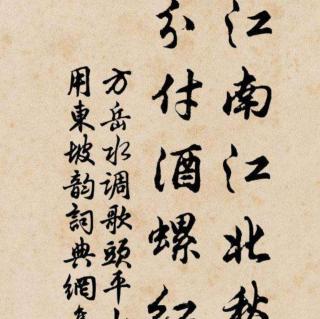 江南江北愁
分付酒螺紅
方岳水调歌頭平山
用東坡韵詞典網